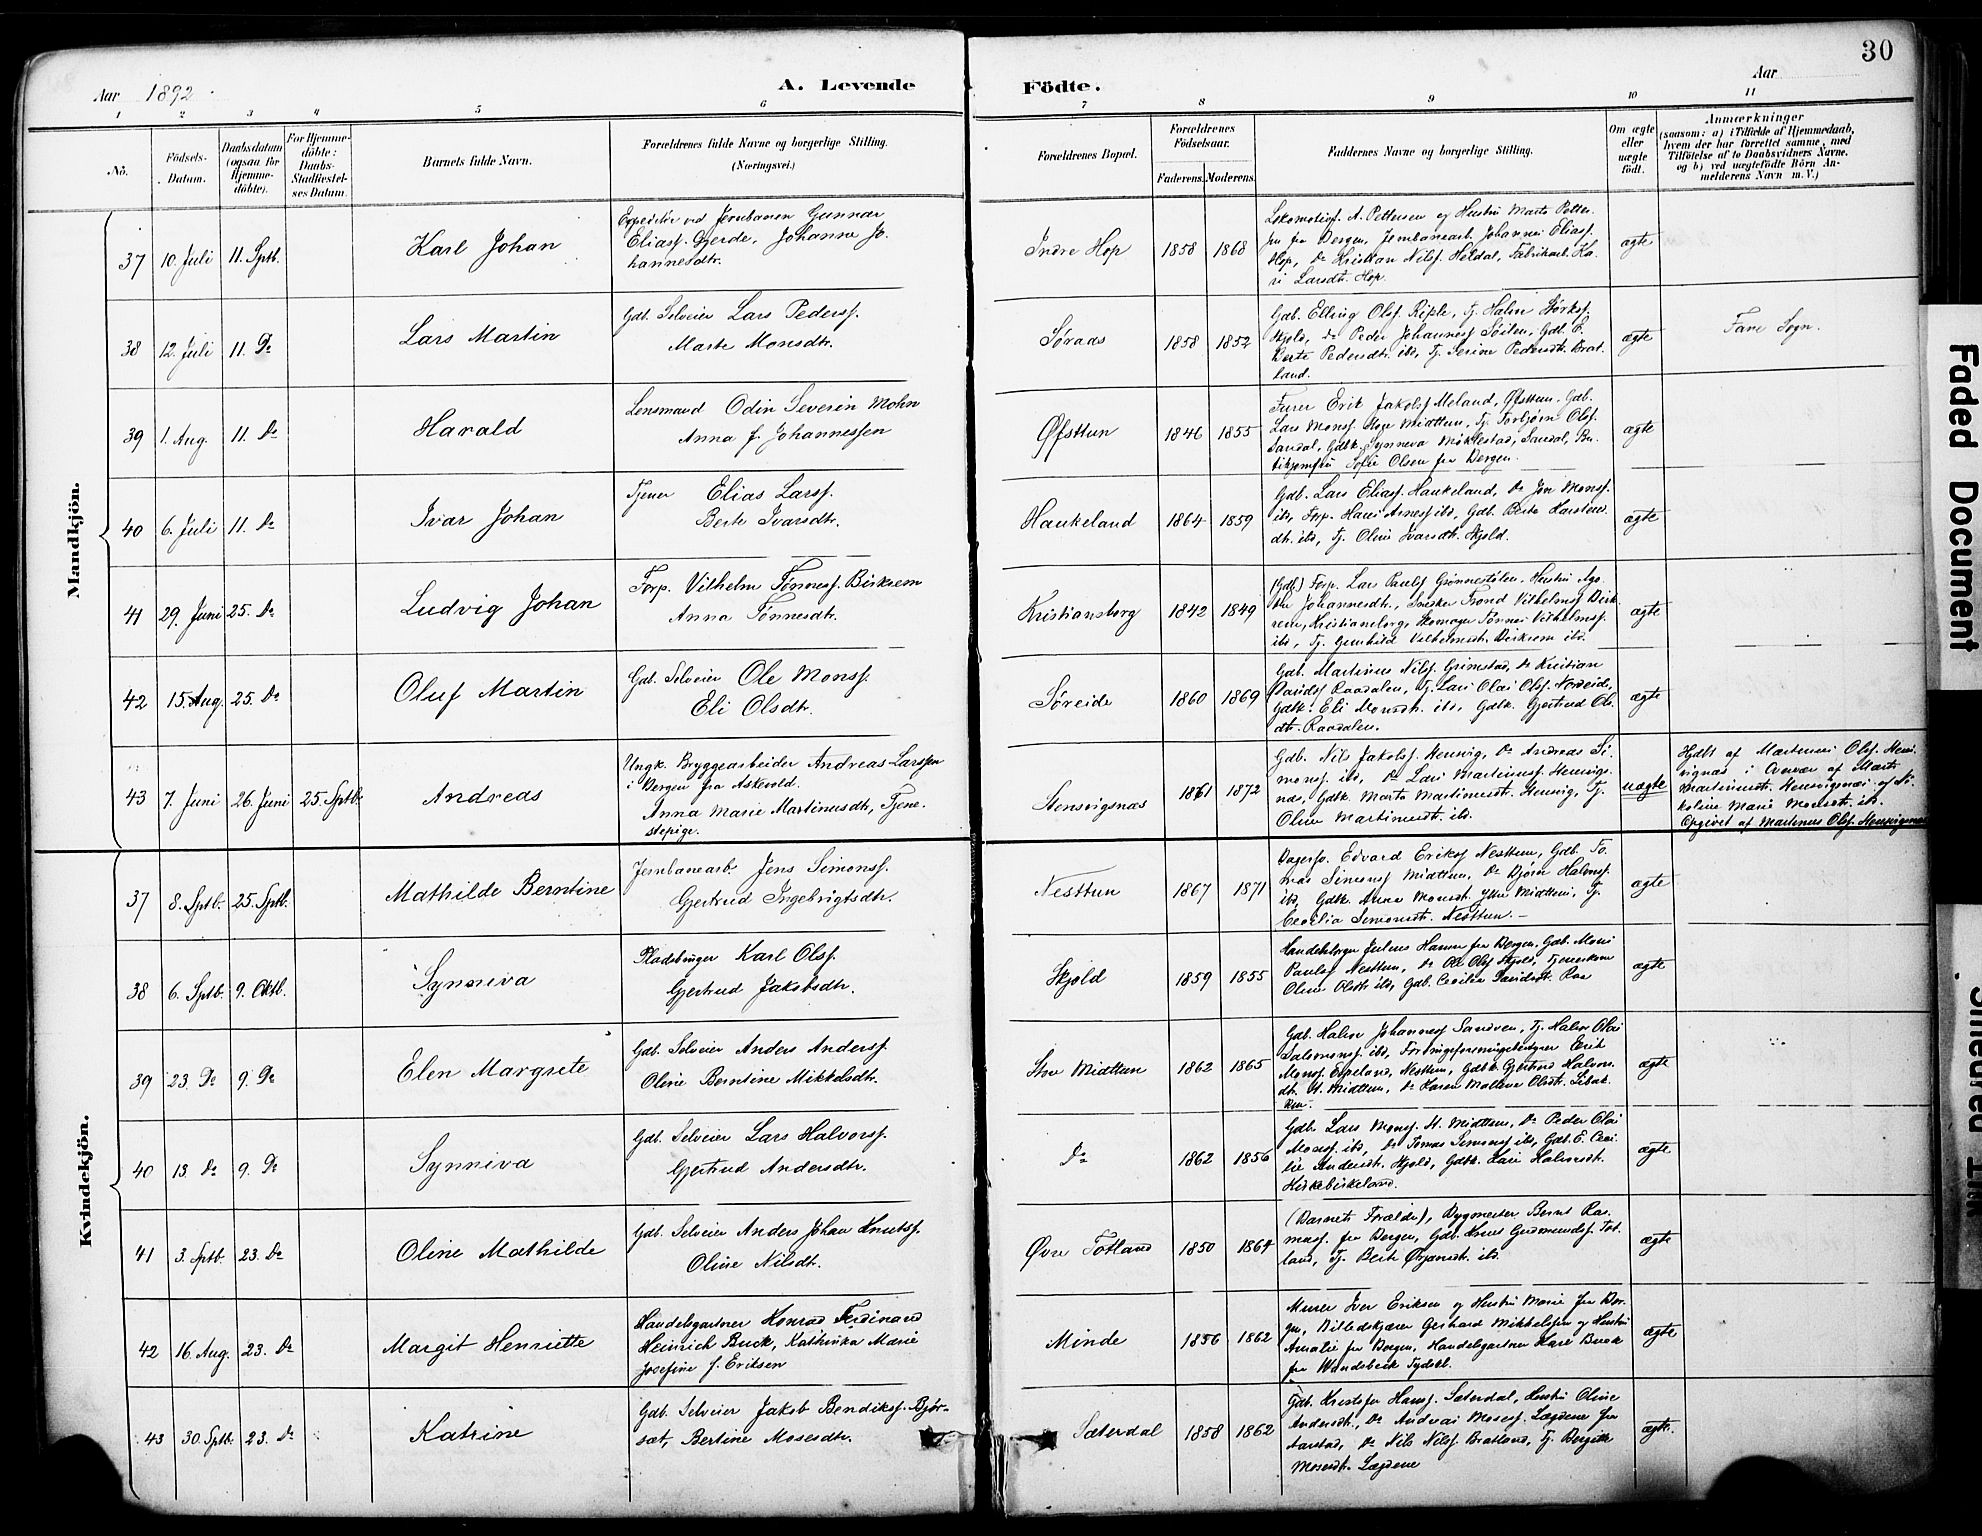 30
Aar 1892. A. Levende Födte. Aar
1 2 3 4 5 6 7 8 9 10 11
No.
Födsels-Datum.
Daabsdatum (ogsaa for Hjemme-döbte).
For Hjemme-döbte: Daabs-Stadfæstel-ses Datum.
Barnets fulde Navn.
Forældrenes fulde Navne og borgerlige Stilling.
(Næringsvei.)
Forældrenes Bopæl.
Forældrenes Födselsaar.
Faderens. Moderens.
Faddernes Navne og borgerlige Stilling.
Om ægte eller uægte födt.
Anmærkninger
(saasom: a) i Tilfælde af Hjemmedaab,
hvem der har forrettet samme, med
Tilföielse af to Daabsvidners Navne.
og b) ved uægtefödte Börn An-
melderens Navn m. V.)
Mandkjön.
37 10. Juli 11. Sptb. Karl Johan
Expeditör ved Jernbanen Gunnar
Eliass. Gjerde, Johanne Jo-
hannesdtr.
Indre Hop 1858 1868
Lokomotivf. A. Pettersen og Hustru Marta Petter-
sen fra Bergen, Jernbanearb. Johannes Eliass.
Hop, Do Kristian Nilss. Heldal, Fabrikarb. Ka-
ri Larsdt. Hop.
ægte
38 12. Juli 11. Do Lars Martin
Gdb. Selveier Lars Pederss.
Marte Monsdtr.
Søraas 1858 1852
Gdb. Elling Olss. Riple, Tj. Halvor Størkss.
Skjold, Do Peder Johanness.
Berte Pedersdt. ibd, Tj. Serine Pedersdt. Brat-
land.
ægte Fane Sogn.
39 1. Aug. 11. Do Harald
Lensmand Odin Severin Mohn
Anna f. Johannessen
Øfsttun 1846 1855
Furer Erik Jakobss. Meland, Øfsttun, Gdb.
Lars Monss. Hope Midttun, Tj. Torbjørn Olss.
Sandal, Gdbk. Synneva Møklestad, Sandal, Bu-
tikjomfru Sofie Olsen fra Bergen.
ægte
40 6. Juli 11. Do Ivar Johan
Tjener Elias Larss.
Berte Ivarsdtr.
Haukeland 1864 1859
Gdb. Lars Eliass. Haukeland, Do Jon Monss.
ibd, Forp. Hans Arness. ibd, Gdb. Berte Karsten-
dt. ibd, Tj. Oline Ivarsdt. Skjold.
ægte
41 29. Juni 25. Do Ludvig Johan
Forp. Vilhelm Tønness. Birkrem
Anna Tønnesdtr.
Kristiansborg 1842 1849
(Gdb.) Forp. Lars Paulss. Grønnestølen, Hustru Aga-
the Johannesdt., Snekker Trond Vilhelmss. Birk-
rem, Kristiansborg, Skomager Tønnes Vilhelmss.
ibd, Tj. Gunhild Vilhelmsdt. Birkrem ibd.
ægte
42 15. Aug. 25. Do Oluf Martin
Gdb. Selveier Ole Monss.
Eli Olsdtr.
Søreide 1860 1869
Gdb. Martinus Nilss. Grimstad, Do Kristian
Davidss. Raadalen, Tj. Lars Olai Olss. Nordeide,
Gdbk. Eli Monsdt. ibd, Gdbk. Gjertrud Ols-
dt. Raadalen.
ægte
43 7. Juni 26. Juni 25. Sptb. Andreas
Ungk. Bryggearbeider Andreas Larssen
i Bergen fra Askevold.
Anna Marie Martinusdt., Tjene-
stepige.
Stensvignæs 1861 1872
Gdb. Nils Jakobss. Stensvig, Do Andreas Si-
monss. ibd, Do Lars Martinuss. Stensvig-
næs, Gdbk. Marta Martinusdt. Stensvig, Tj.
Oline Martinusdt. ibd.
uægte
Hjdbt af Martinus Olss. Stens-
vignæs i Overvær af Marta
Martinusdt. Stensvignæs og Ni-
koline Marie Monsdt. ib.
Opgivet af Martinus Olss. Stensvignæs
Kvindekjön.
37 8. Sptb. 25. Sptb. Mathilde Berntine
Jernbanearb. Jens Simonss.
Gjertrud Ingebrigtsdtr.
Nesttun 1867 1871
Bagersv. Edvard Erikss. Nesttun, Gdb. To-
mas Simonss. Midttun, Do Bjørn Halvorss.
ibd, Gdbk. Anna Monsdt. Ytre Midttun, Tj.
Cecilia Simonsdt. Nesttun.
ægte
38 6. Sptb. 9. Oktb. Synneva
Pladsbruger Karl Olss.
Gjertrud Jakobsdtr.
Skjold 1859 1855
Handelsborger Julius Hamm fra Bergen, Gdb. Mons
Paulss. Nesttun, Do Ole Olss. Skjold, Tjenerkone
Oline Olsdt. ibd, Gdb. Cecilia Davidsdt. Raa
ægte
39 23. Do 9. Do Elen Margrete
Gdb. Selveier Anders Anderss.
Oline Berntine Mikkelsdtr.
Stre Midttun 1862 1865
Gdb. Halvor Johanness. Sandven, Tj. Halvor Olai
Salomonss. ibd, Forbrugsforeningsbestyrer Erik
Monss. Espeland, Nesttun, Gdbk. Gjertrud Halvors-
dt. St. Midttun, Do Karen Malene Olsdt. Sibak-
ken.
ægte
40 13. Do 9. Do Synneva
Gdb. Selveier Lars Halvorss.
Gjertrud Andersdtr.
Do 1862 1856
Gdb. Lars Monss. St. Midttun, Do Peder Olai
Moses. ibd, Do Tomas Simonss. ibd, Gdb. E. Ceci-
lie Andersdt. Skjold, Gdbk. Kari Halvorsdt.
Kirkebirkeland.
ægte
41 3. Sptb. 23. Do Oline Mathilde
Gdb. Selveier Anders Johan Knutss.
Oline Nilsdtr.
Øvre Totland 1850 1864
(Barnets Forældre), Bygmester Bernt Ras-
mass. fra Bergen, Gdb. Knut Gudmundss. Tot-
land, Tj. Berte Ørjansdt. ibd.
ægte
42 16. Aug. 23. Do Margit Henriette
Handelsgartner Konrad Ferdinand
Heinrich Buck, Kathinka Marie
Josefine f. Eriksen
Minde 1856 1862
Murer Iver Eriksen og Hustru Marie fra Ber-
gen, Billedskjærer Gerhard Mikkelsen og Hustru
Amalie fra Bergen, Handelsgartner Karl Buck
fra Wandsbeck Tydskl.
ægte
43 30. Sptb. 23. Do Katrine
Gdb. Selveier Jakob Bendikss. Bjør-
sæt, Bertine Mosesdtr.
Sæterdal 1858 1862
Gdb. Kristofer Hanss. Sæterdal, Hustru Oline
Andersdt., Do Andreas Moses. Lægdene fra
Aarstad, Do Nils Nilss. Bratland, Tj. Bergitte
Mosesdt. Lægdene
ægte.
Faded Document
Smeared Ink